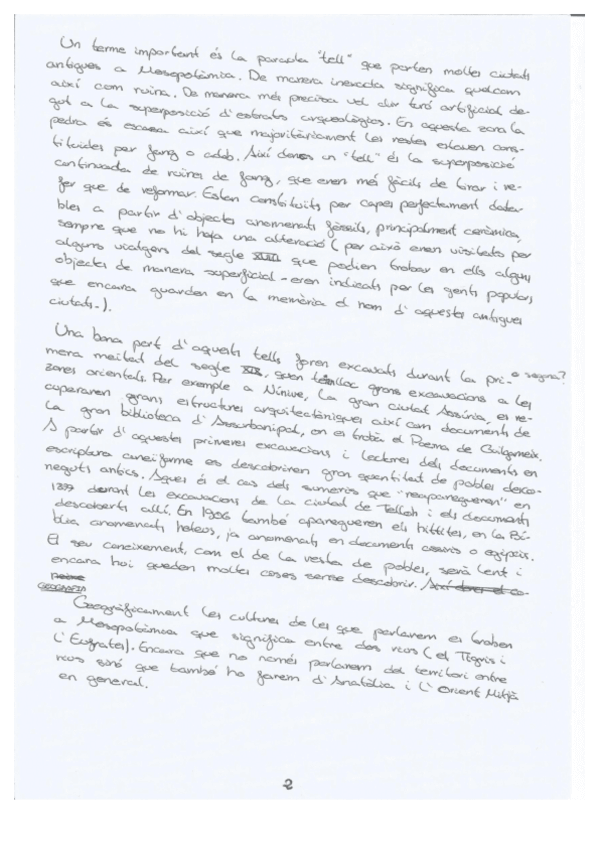 Un terme important és la paraula "tell" que porten moltes ciutats
antigues a Mesopotàmia. De manera inexacta significa quelcom
així com ruina. De manera més precisa vol dir turó artificial de-
gut a la superposició d'estrats arqueològics. En aquesta zona la
pedra és escassa així que majoritàriament les restes estaven cons-
tituïdes per fang o adob. Així doncs un "tell" és la superposició
continuada de ruines de fang, que eren més fàcils de tirar i re-
fer que de reformar. Estan constituïts per capes perfectament data-
bles a partir d'objectes anomenats fòssils, principalment ceràmica,
sempre que no hi haja una alteració (per això eren visitats per
alguns viatgers del segle XVIII que podien trobar en ells alguns
objectes de manera superficial - eren indicats per les gents populars
que encara guarden en la memòria el nom d'aquestes antigues
ciutats-).
Una bona part d'aquests tells foren excavats durant la pri- o segona?
mera meitat del segle XIX, quan tingueren lloc grans excavacions a les
zones orientals. Per exemple a Nínive, la gran ciutat Assíria, es re-
cuperaren grans estructures arquitectòniques així com documents de
la gran biblioteca d'Assurbanipal, on es trobà el Poema de Gilgameix.
A partir d'aquestes primeres excavacions i lectures dels documents en
escriptura cuneiforme es descobriren gran quantitat de pobles desco-
neguts antics. Aques és el cas dels sumeris que "reaparegueren" en
1877 durant les excavacions de la ciutat de Telloh i els documents
descoberts allí. En 1906 també aparegueren els hittites, en la Bí-
blia anomenats heteus, ja anomenats en documents assiris o egipcis.
El seu coneixement, com el de la resta de pobles, serà lent i
encara hui queden moltes coses sense descobrir. Així doncs el co-
GEOGRAFIA
Geogràficament les cultures de les que parlarem es troben
a Mesopotàmia que significa entre dos rius (el Tigris i
l'Eufrates). Encara que no només parlarem del territori entre
rius sinó que també ho farem d'Anatòlia i l'Orient Mitjà
en general.
2